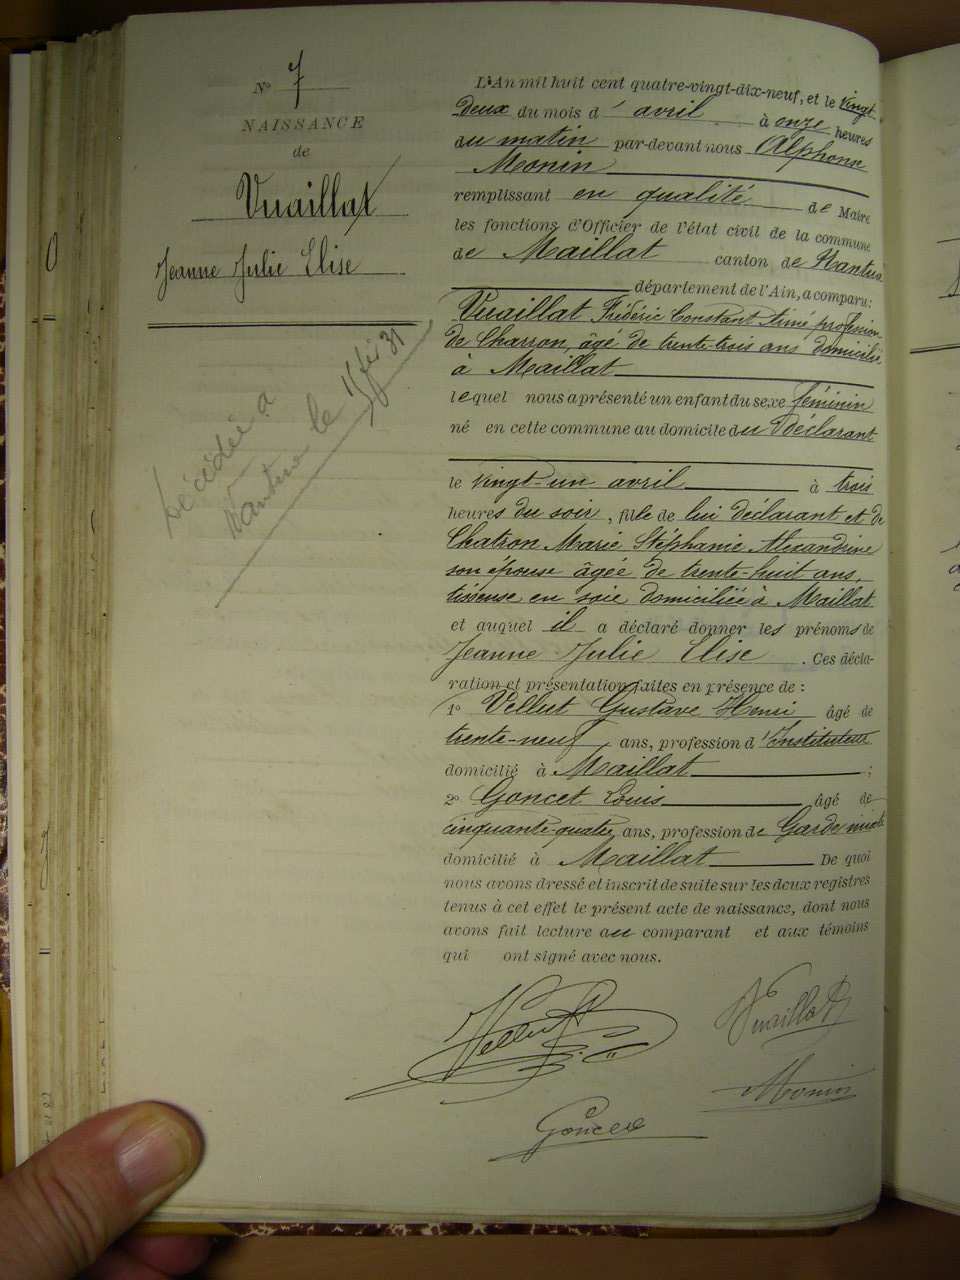 N° 7
NAISSANCE
de
Vuaillat
Jeanne Julie Elise
Décédée à
Nantua le 11 fév 31
L'An mil huit cent quatre-vingt-dix-neuf, et le vingt-
deux du mois d'avril à onze heures
du matin par-devant nous Alphonse
Monin
remplissant en qualité de Maire
les fonctions d'Officier de l'état civil de la commune
de Maillat canton de Nantua
département de l'Ain, a comparu:
Vuaillat Frédéric Constant Aimé profession
de Charron, âgé de trente-trois ans domicilié
à Maillat
lequel nous a présenté un enfant du sexe féminin
né en cette commune au domicile du déclarant
le vingt-un avril à trois
heures du soir, fille de lui déclarant et de
Chatron Marie Stéphanie Alexandrine
son épouse âgée de trente-huit ans,
tisseuse en soie domiciliée à Maillat
et auquel il a déclaré donner les prénoms de
Jeanne Julie Elise. Ces décla-
ration et présentation faites en présence de:
1° Vellut Gustave Henri âgé de
trente-neuf ans, profession d'Instituteur
domicilié à Maillat;
2° Goncet Louis âgé de
cinquante-quatre ans, profession de Garde
domicilié à Maillat De quoi
nous avons dressé et inscrit de suite sur les deux registres
tenus à cet effet le présent acte de naissance, dont nous
avons fait lecture au comparant et aux témoins
qui ont signé avec nous.
Vellut
Vuaillat
Monin
Goncet